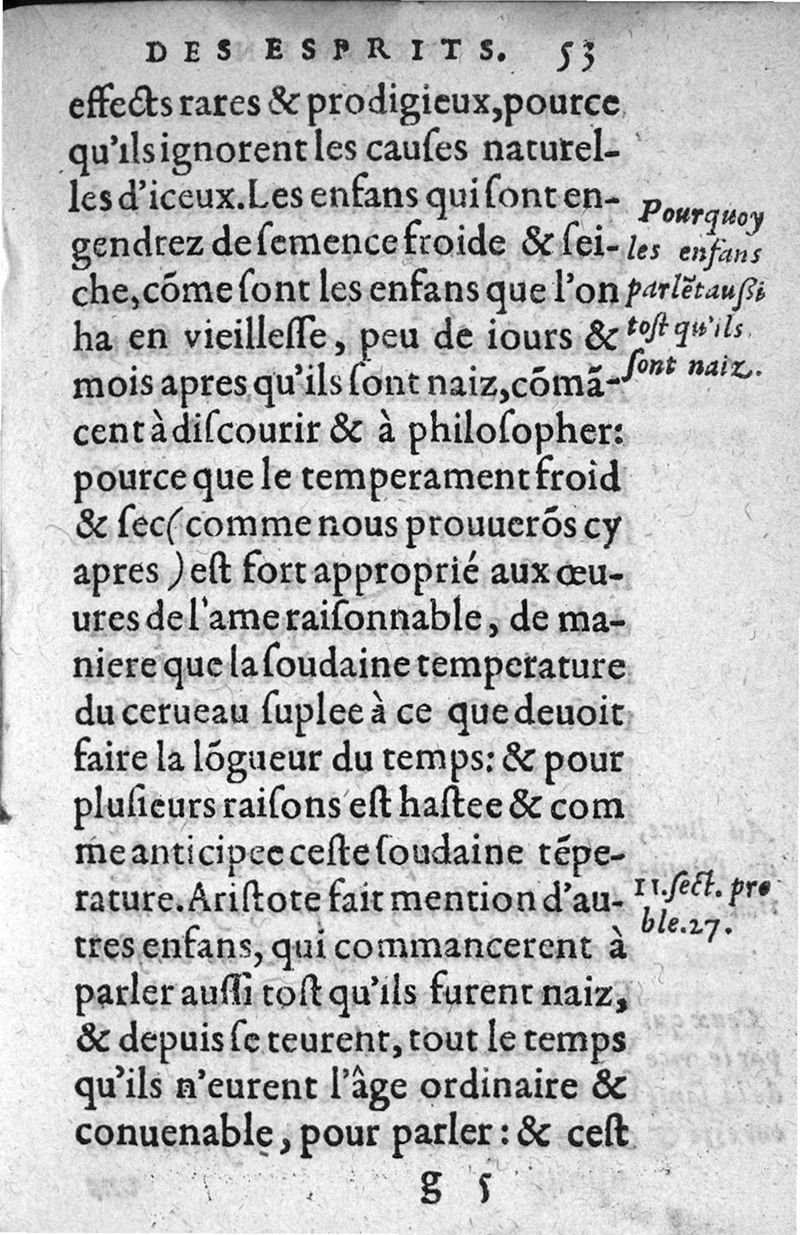 DES ESPRITS. 53
effects rares & prodigieux,pource
qu'ils ignorent les cauſes naturel-
les d'iceux.Les enfans qui ſont en-
gendrez de ſemence froide & ſei-
che,cõme ſont les enfans que l'on
ha en vieilleſſe, peu de iours &
mois apres qu'ils ſont naiz,cõmã-
cent à diſcourir & à philoſopher:
pource que le temperament froid
& ſec(comme nous prouuerõs cy
apres )eſt fort approprié aux œu-
ures de l'ame raiſonnable, de ma-
niere que la ſoudaine temperature
du cerueau ſuplee à ce que deuoit
faire la lõgueur du temps: & pour
pluſieurs raiſons eſt haſtee & com
me anticipee ceſte ſoudaine tẽpe-
rature.Ariſtote fait mention d'au-
tres enfans, qui commancerent à
parler auſſi toſt qu'ils furent naiz,
& depuis ſe teurent, tout le temps
qu'ils n'eurent l'âge ordinaire &
conuenable, pour parler: & ceſt
g 5
Pourquoy
les enfans
parlẽt auſſi
toſt qu'ils
ſont naiz.
11.ſect. pro
ble.27.